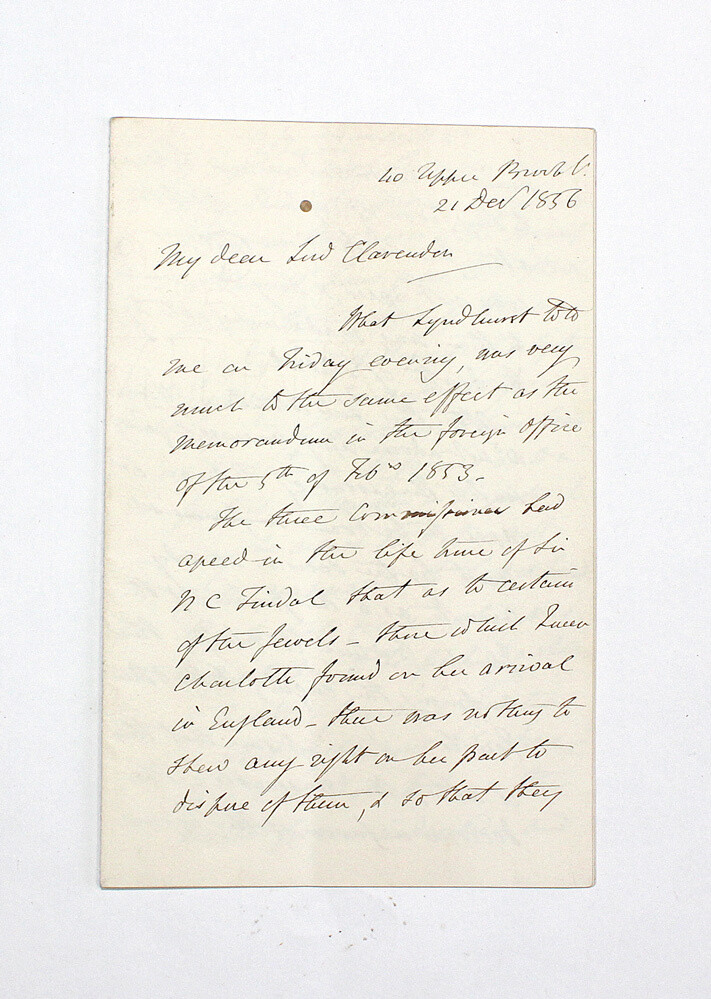 40 Upper Brook St.
21 Decr 1856
My dear Lord Clarendon
What Lyndhurst told
me on Friday evening, was very
much to the same effect as the
Memorandum in the foreign Office
of the 5th of Feby 1853.
The three Commissioners had
agreed in the life time of Sir
N C Tindal that as to certain
of the Jewels – those which Queen
Charlotte found on her arrival
in England – there was nothing to
shew any right on her part to
dispose of them, & so that they